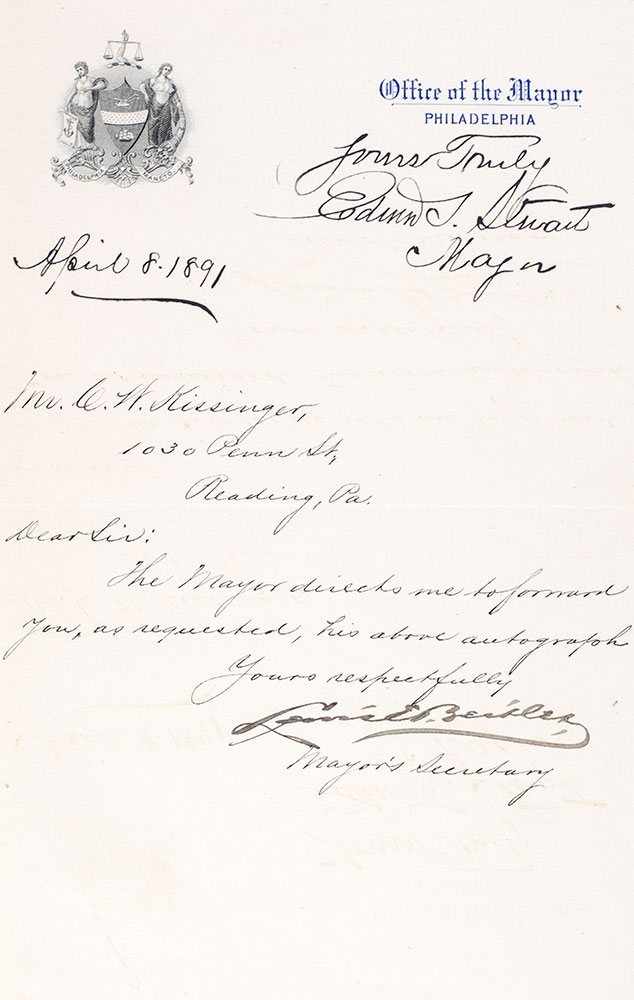 Office of the Mayor
PHILADELPHIA
Yours Truly
Edwin S. Stuart
Mayor
PHILADELPHIA MANETO
April 8. 1891
Mr. C. W. Kissinger,
1030 Penn St,
Reading, Pa.
Dear Sir:
The Mayor directs me to forward
you, as requested, his above autograph
Yours respectfully
Louis E. Beitler
Mayor's Secretary